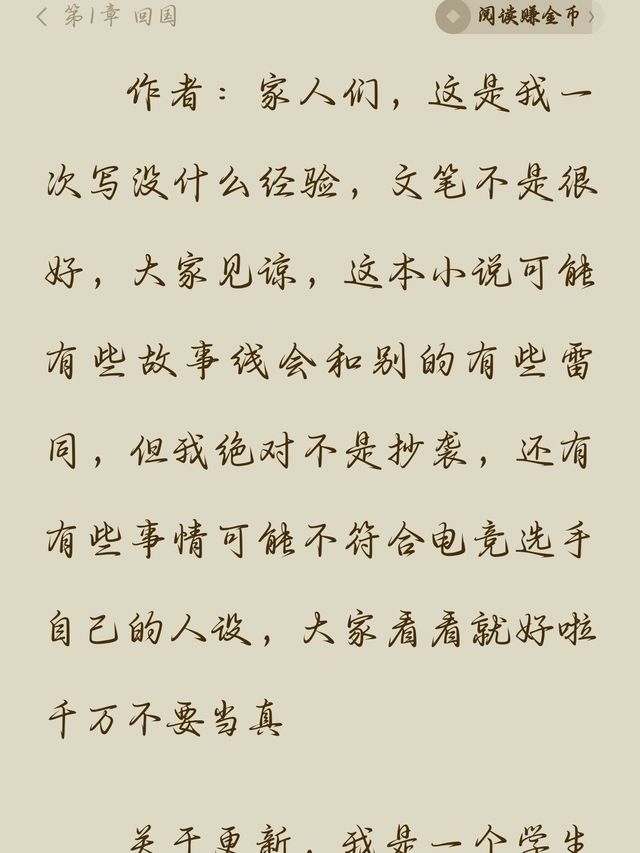 第1章 回国
阅读赚金币
作者：家人们，这是我一
次写没什么经验，文笔不是很
好，大家见谅，这本小说可能
有些故事线会和别的有些雷
同，但我绝对不是抄袭，还有
有些事情可能不符合电竞选手
自己的人设，大家看看就好啦
千万不要当真
关于更新，我是一个学生